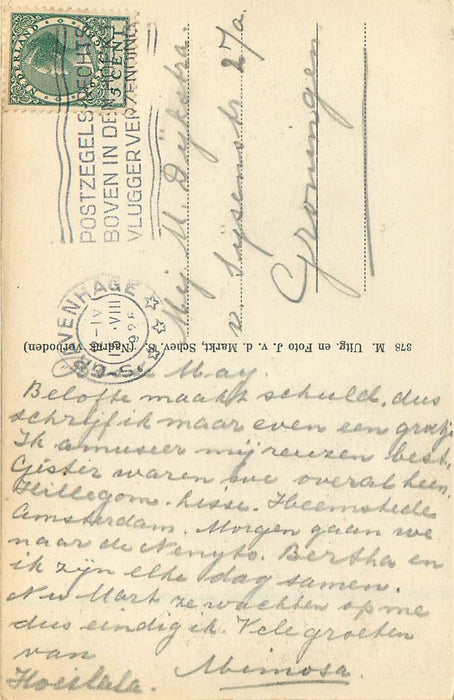 NEDERLAND
5 CENT
POSTZEGELS RECHTS
BOVEN IN DEN HOEK
VLUGGER VERZENDING
'S-GRAVENHAGE
VIII
Mej. M. Dijkstra.
v. Sijsenstr 27a
Groningen
378 M. Uitg. en Foto J. v. d. Markt, Schev. G. (Nadruk verboden)
May.
Belofte maakt schuld, dus
schrijf ik maar even een groetje
Ik amuseer mij reuzen best.
Gister waren we overal heen,
Hillegom. Lisse. Heemstede
Amsterdam. Morgen gaan we
naar de Nenyto. Bertha en
ik zijn elke dag samen.
Nu Mart ze wachten op me
dus eindig ik. Vele groeten
van
Hoeilala. Mimosa.